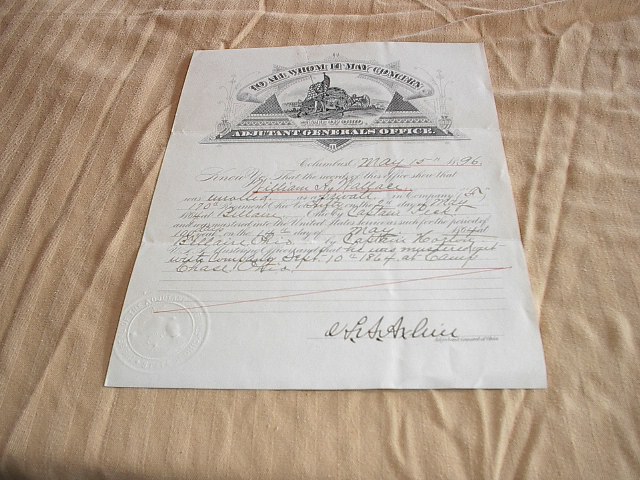 TO ALL WHOM IT MAY CONCERN
STATE OF OHIO
ADJUTANT GENERALS OFFICE.
Columbus, May 15th 1896.
Know Ye, That the records of this office show that
William H. Wallace,
was enrolled as a Private in Company (F)
170th Regiment on the 2nd day of May
1864 at Bellaire Ohio by Captain
and was mustered into The United States service as such for the period of
100 days on the day of May 1864 at
Bellaire Ohio by Captain
and that he was mustered out
with Company Sept. 10th 1864 at Camp
Chase, Ohio,
Adjutant General of Ohio